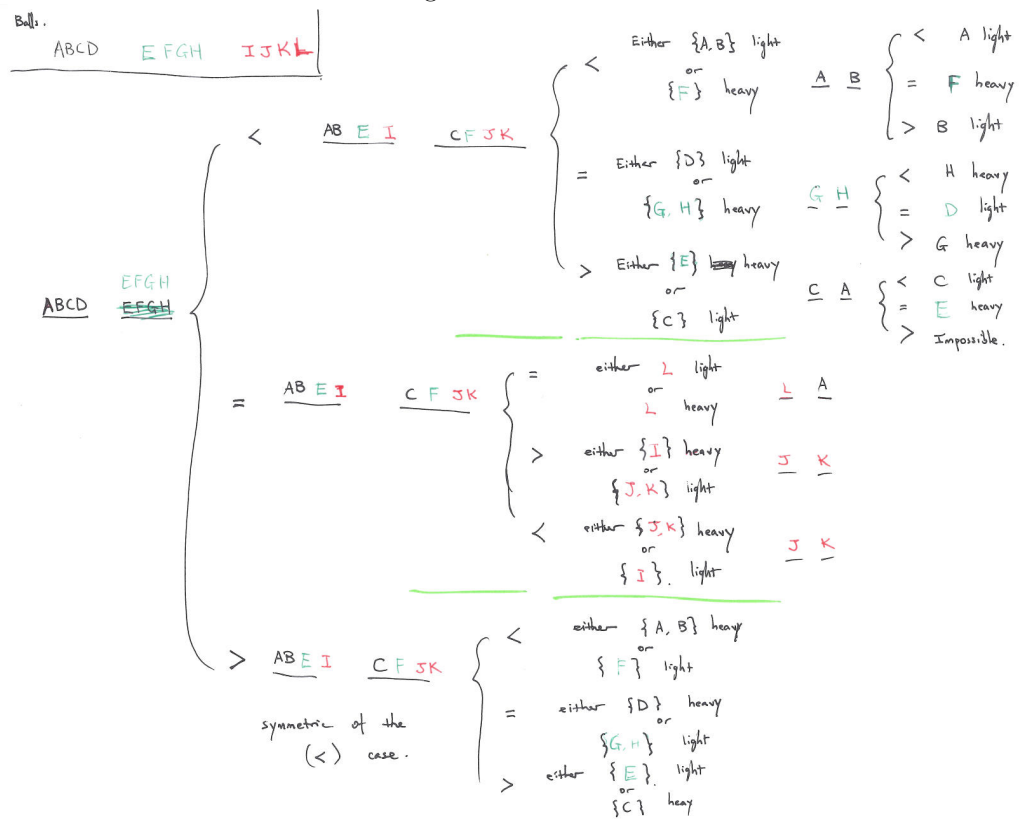 Balls.
ABCD EFGH IJKL
< AB E I C F J K
< Either {A, B} light
or
{F} heavy
A B
< A light
= F heavy
> B light
= Either {D} light
or
{G, H} heavy
G H
< H heavy
= D light
> G heavy
> Either {E} heavy
or
{C} light
C A
< C light
= E heavy
> Impossible.
EFGH
ABCD EFGH
= AB E I C F J K
= either L light
or
L heavy
L A
> either {I} heavy
or
{J, K} light
J K
< either {J, K} heavy
or
{I}. light
J K
> AB E I C F J K
symmetric of the
(<) case.
< either {A, B} heavy
or
{F} light
= either {D} heavy
or
{G, H} light
> either {E}. light
or
{C} heay